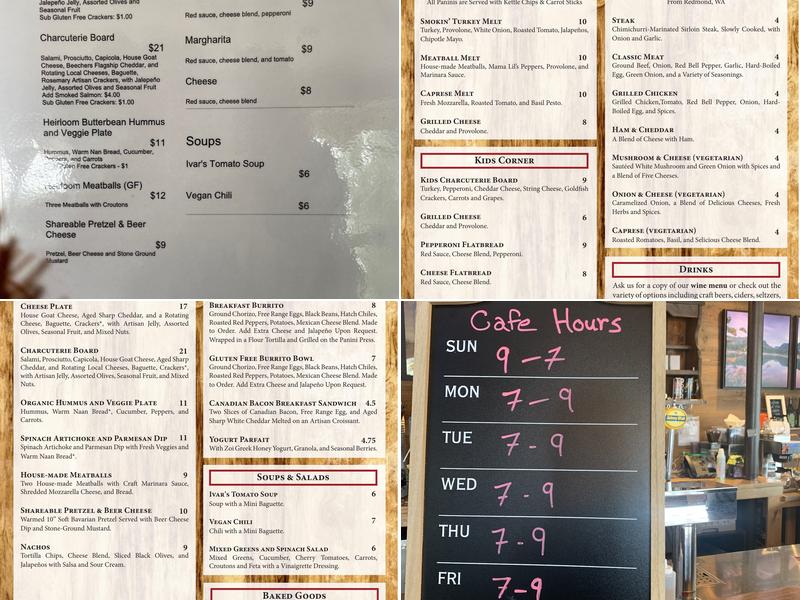 Jalapeño, Assorted Olives and
Seasonal Fruit
Sub Gluten Free Crackers: $1.00
Charcuterie Board
$21
Salami, Prosciutto, Capicola, House Goat
Cheese, Beechers Flagship Cheddar, and
Rotating Local Cheeses, Baguette,
Rosemary Artisan Crackers, with Jalapeño
Jelly, Assorted Olives and Seasonal Fruit
Add Smoked Salmon: $4.00
Sub Gluten Free Crackers: $1.00
Heirloom Butterbean Hummus
and Veggie Plate
$11
Hummus, Warm Nan Bread, Cucumber,
and Carrots
Free Crackers - $1
Meatballs (GF)
$12
Three Meatballs with Croutons
Shareable Pretzel & Beer
Cheese
$9
Pretzel, Beer Cheese and Stone Ground
Mustard
$9
Red sauce, cheese blend, pepperoni
Margharita
$9
Red sauce, cheese blend, and tomato
Cheese
$8
Red sauce, cheese blend
Soups
Ivar's Tomato Soup
$6
Vegan Chili
$6
All Paninis are Served with Kettle Chips & Carrot Sticks
Smokin' Turkey Melt 10
Turkey, Provolone, White Onion, Roasted Tomato, Jalapeños,
Chipotle Mayo.
Meatball Melt 10
House-made Meatballs, Mama Lil's Peppers, Provolone, and
Marinara Sauce.
Caprese Melt 10
Fresh Mozzarella, Roasted Tomato, and Basil Pesto.
Grilled Cheese 8
Cheddar and Provolone.
Kids Corner
Kids Charcuterie Board 9
Turkey, Pepperoni, Cheddar Cheese, String Cheese, Goldfish
Crackers, Carrots and Grapes.
Grilled Cheese 6
Cheddar and Provolone.
Pepperoni Flatbread 9
Red Sauce, Cheese Blend, Pepperoni.
Cheese Flatbread 8
Red Sauce, Cheese Blend.
From Redmond, WA
Steak 4
Chimichurri-Marinated Sirloin Steak, Slowly Cooked, with
Onion and Garlic.
Classic Meat 4
Ground Beef, Onion, Red Bell Pepper, Garlic, Hard-Boiled
Egg, Green Onion, and a Variety of Seasonings.
Grilled Chicken 4
Grilled Chicken,Tomato, Red Bell Pepper, Onion, Hard-
Boiled Egg, and Spices.
Ham & Cheddar 4
A Blend of Cheese with Ham.
Mushroom & Cheese (vegetarian) 4
Sautéed White Mushroom and Green Onion with Spices and
a Blend of Five Cheeses.
Onion & Cheese (vegetarian) 4
Caramelized Onion, a Blend of Delicious Cheeses, Fresh
Herbs and Spices.
Caprese (vegetarian) 4
Roasted Romatoes, Basil, and Selicious Cheese Blend.
Drinks
Ask us for a copy of our wine menu or check out the
variety of options including craft beers, ciders, seltzers,
Cheese Plate 17
House Goat Cheese, Aged Sharp Cheddar, and a Rotating
Cheese, Baguette, Crackers*, with Artisan Jelly, Assorted
Olives, Seasonal Fruit, and Mixed Nuts.
Charcuterie Board 21
Salami, Prosciutto, Capicola, House Goat Cheese, Aged Sharp
Cheddar, and Rotating Local Cheeses, Baguette, Crackers*,
with Artisan Jelly, Assorted Olives, Seasonal Fruit, and Mixed
Nuts.
Organic Hummus and Veggie Plate 11
Hummus, Warm Naan Bread*, Cucumber, Peppers, and
Carrots.
Spinach Artichoke and Parmesan Dip 11
Spinach Artichoke and Parmesan Dip with Fresh Veggies and
Warm Naan Bread*.
House-made Meatballs 9
Two House-made Meatballs with Craft Marinara Sauce,
Shredded Mozzarella Cheese, and Bread.
Shareable Pretzel & Beer Cheese 10
Warmed 10" Soft Bavarian Pretzel Served with Beer Cheese
Dip and Stone-Ground Mustard.
Nachos 9
Tortilla Chips, Cheese Blend, Sliced Black Olives, and
Jalapeños with Salsa and Sour Cream.
Breakfast Burrito 8
Ground Chorizo, Free Range Eggs, Black Beans, Hatch Chiles,
Roasted Red Peppers, Potatoes, Mexican Cheese Blend. Made
to Order. Add Extra Cheese and Jalapeño Upon Request.
Wrapped in a Flour Tortilla and Grilled on the Panini Press.
Gluten Free Burrito Bowl 7
Ground Chorizo, Free Range Eggs, Black Beans, Hatch Chiles,
Roasted Red Peppers, Potatoes, Mexican Cheese Blend. Made
to Order. Add Extra Cheese and Jalapeño Upon Request.
Canadian Bacon Breakfast Sandwich 4.5
Two Slices of Canadian Bacon, Free Range Egg, and Aged
Sharp White Cheddar Melted on an Artisan Croissant.
Yogurt Parfait 4.75
With Zoi Greek Honey Yogurt, Granola, and Seasonal Berries.
Soups & Salads
Ivar's Tomato Soup 6
Soup with a Mini Baguette.
Vegan Chili 7
Chili with a Mini Baguette.
Mixed Greens and Spinach Salad 6
Mixed Greens, Cucumber, Cherry Tomatoes, Carrots,
Croutons and Feta with a Vinaigrette Dressing.
Baked Goods
Cafe Hours
SUN 9-7
MON 7-9
TUE 7-9
WED 7-9
THU 7-9
FRI 7-9